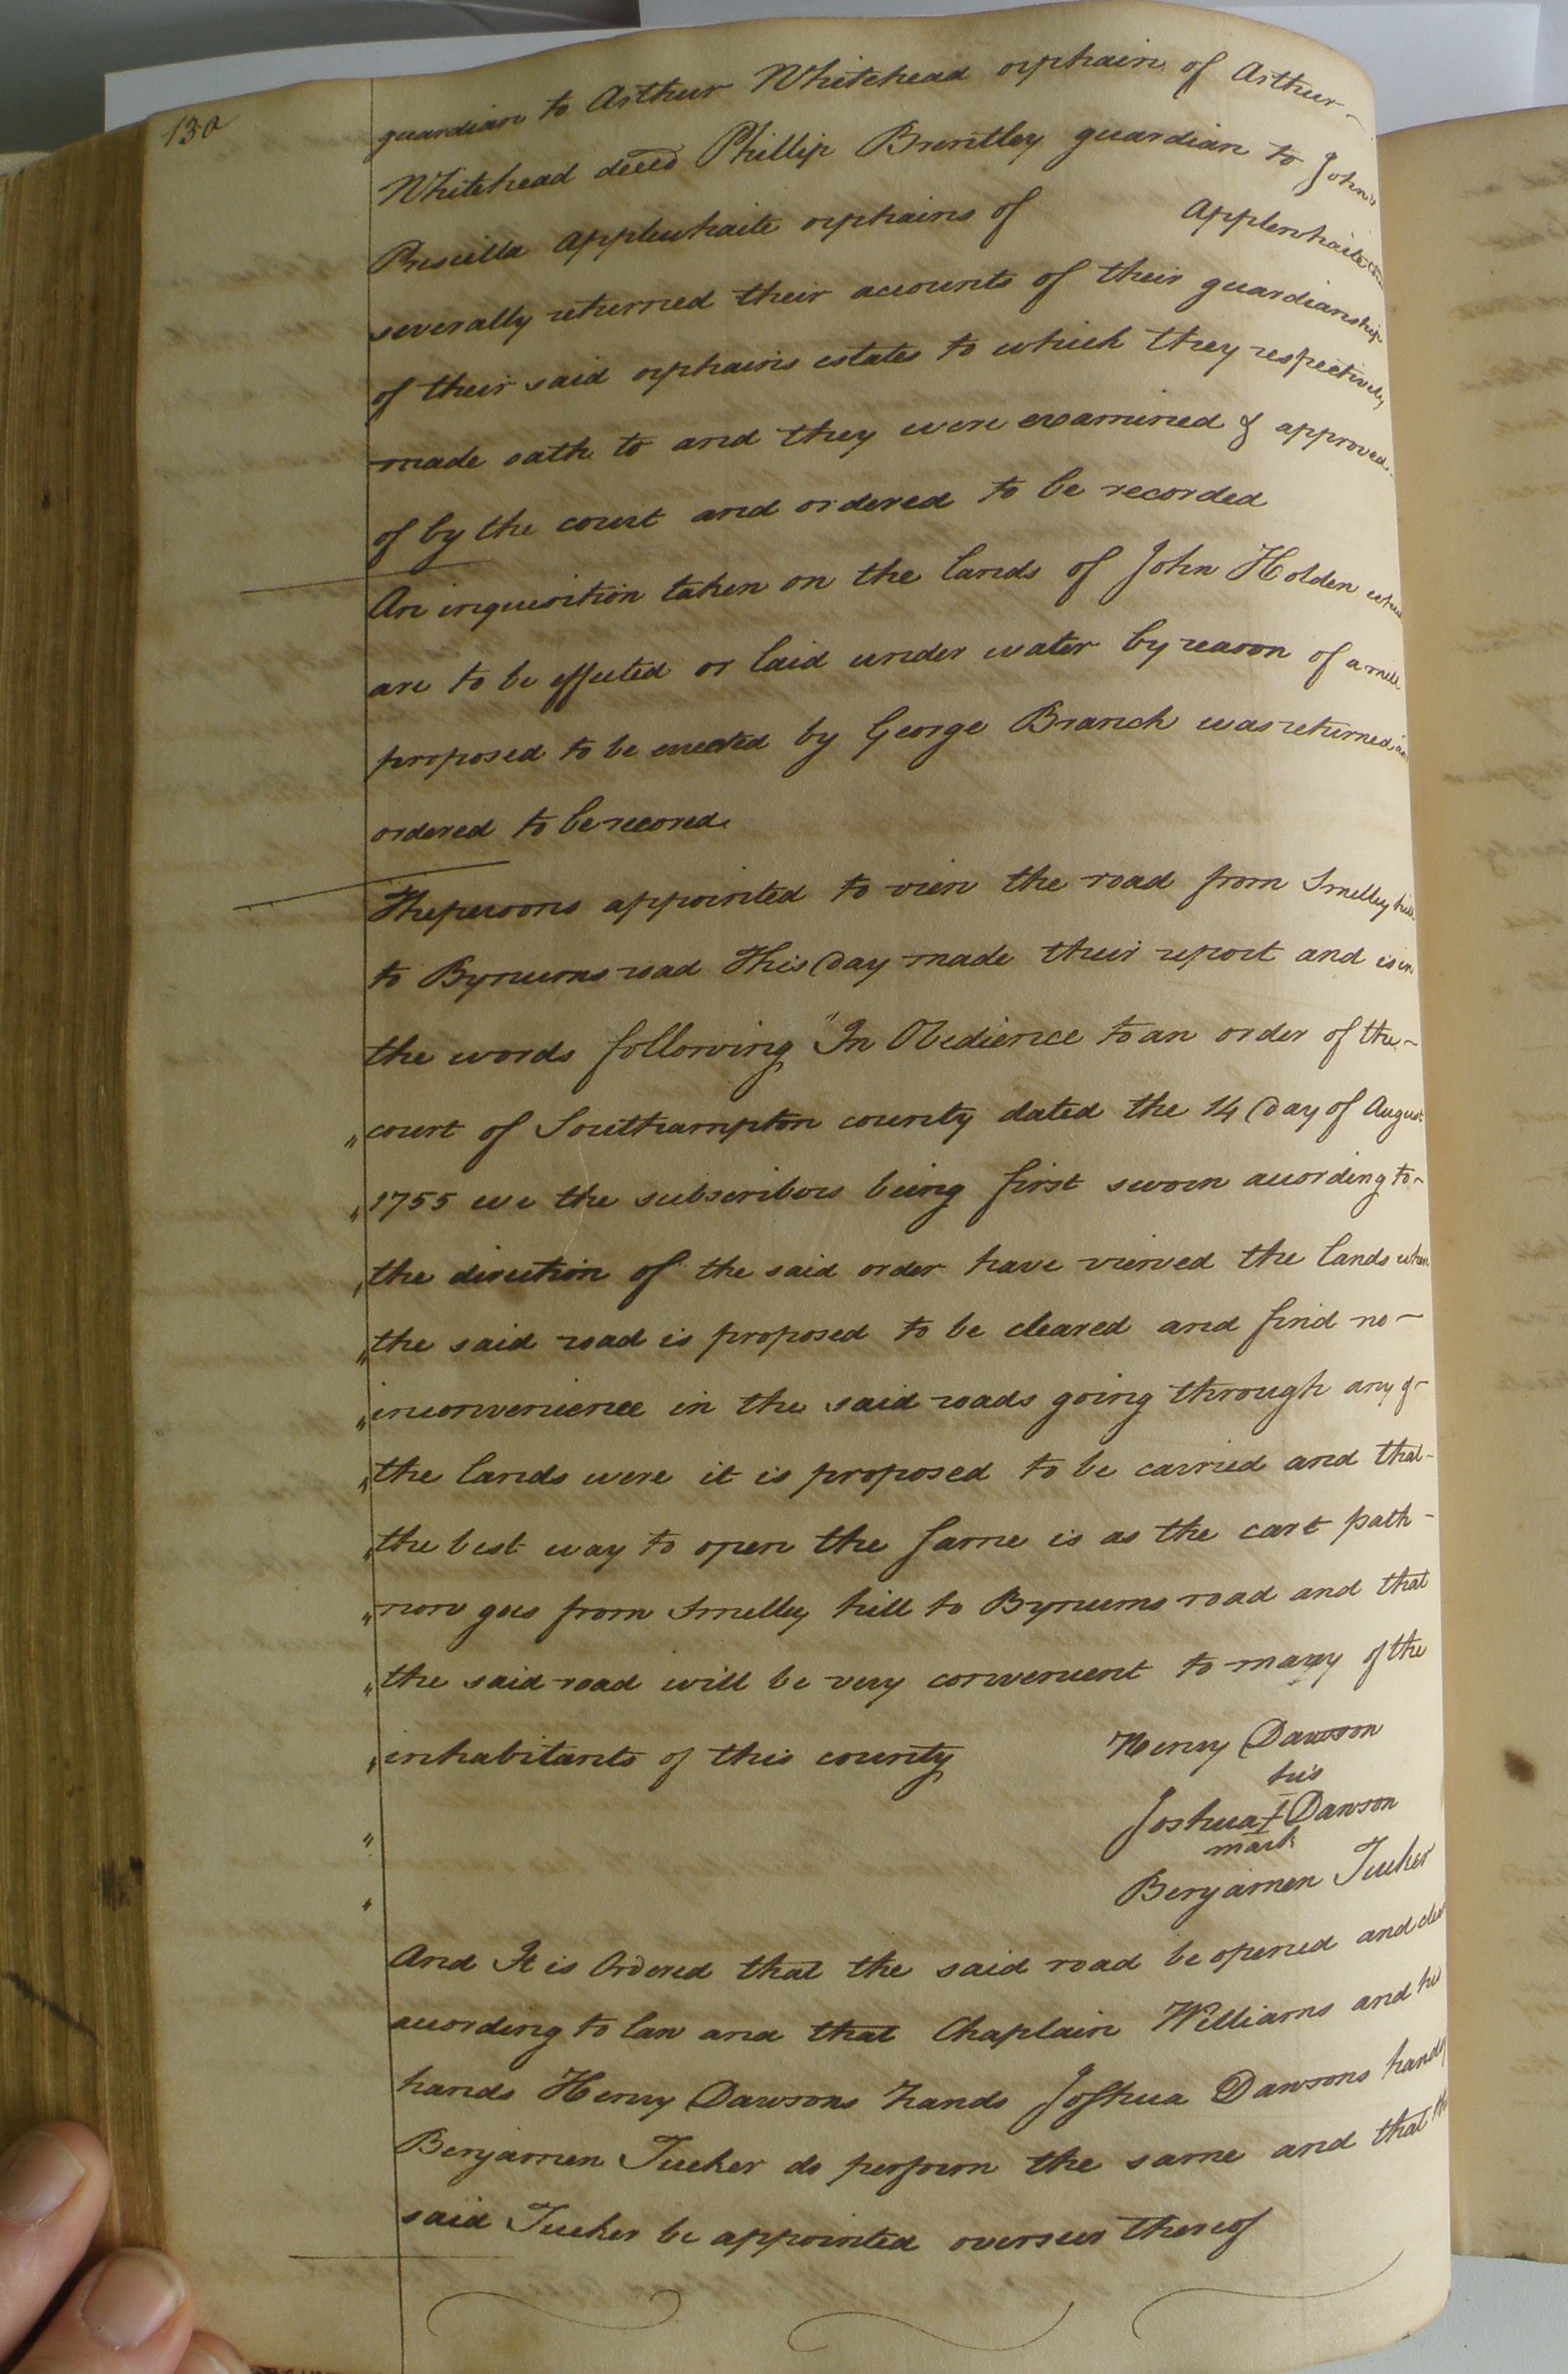 130
guardian to Arthur Whitehead orphain of Arthur
Whitehead deced Phillip Brentley guardian to John &
Priscilla Applewhaite orphains of Applewhaite
severally returned their accounts of their guardianship
of their said orphains estates to which they respectively
made oath to and they were examined & approved
of by the court and ordered to be recorded
An inquisition taken on the lands of John Holden
are to be effected or laid under water by reason of a mill
proposed to be erected by George Branch was returned an
ordered to be recored
The persons appointed to view the road from Smelley hill
to Bynums road This Day made their report and is in
the words following "In Obedience to an order of the
" court of Southampton county dated the 14 Day of August
" 1755 we the subscribers being first sworn acording to
" the direction of the said order have viewed the lands when
" the said road is proposed to be cleared and find no
" inconvenience in the said roads going through any of
" the lands were it is proposed to be carried and that
" the best way to open the same is as the cart path
" now goes from Smelley hill to Bynums road and that
" the said road will be very convenient to many of the
" inhabitants of this county Henry Dawson
his
" Joshua + Dawson
mark
" Benjamen Tucker
And It is Ordered that the said road be opened and
acording to law and that Chaplain Williams and his
hands Henry Dawsons hands Joshua Dawsons hands
Benjamen Tucker do perform the same and that the
said Tucker be appointed overseer thereof